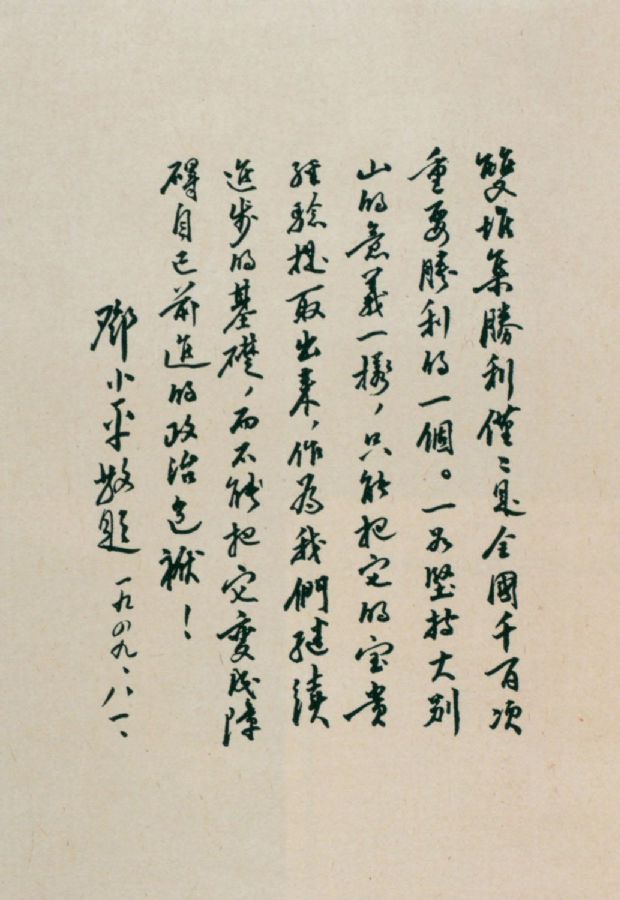 雙堆集勝利僅〻是全國千百次
重要勝利的一個。一如堅持大別
山的意義一樣，只能把它的宝貴
經驗提取出来，作為我們繼續
進步的基礎，而不能把它變成障
碍自己前進的政治包袱！
鄧小平敬題 一九四九、八、一、